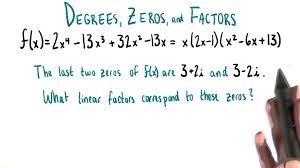 DEGREES, ZEROS, AND FACTORS
f(x)=2x⁴-13x³+32x²-13x=x(2x-1)(x²-6x+13)
The last two zeros of f(x) are 3+2i and 3-2i.
What linear factors correspond to these zeros?